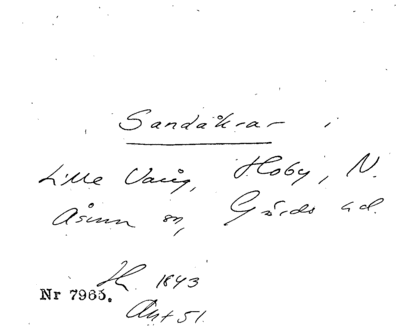 Sandåkrar i
Lille Vång, Hoby, N.
Åsum sn, Gärds hd.
1843
Nr 7965.
Akt 51.